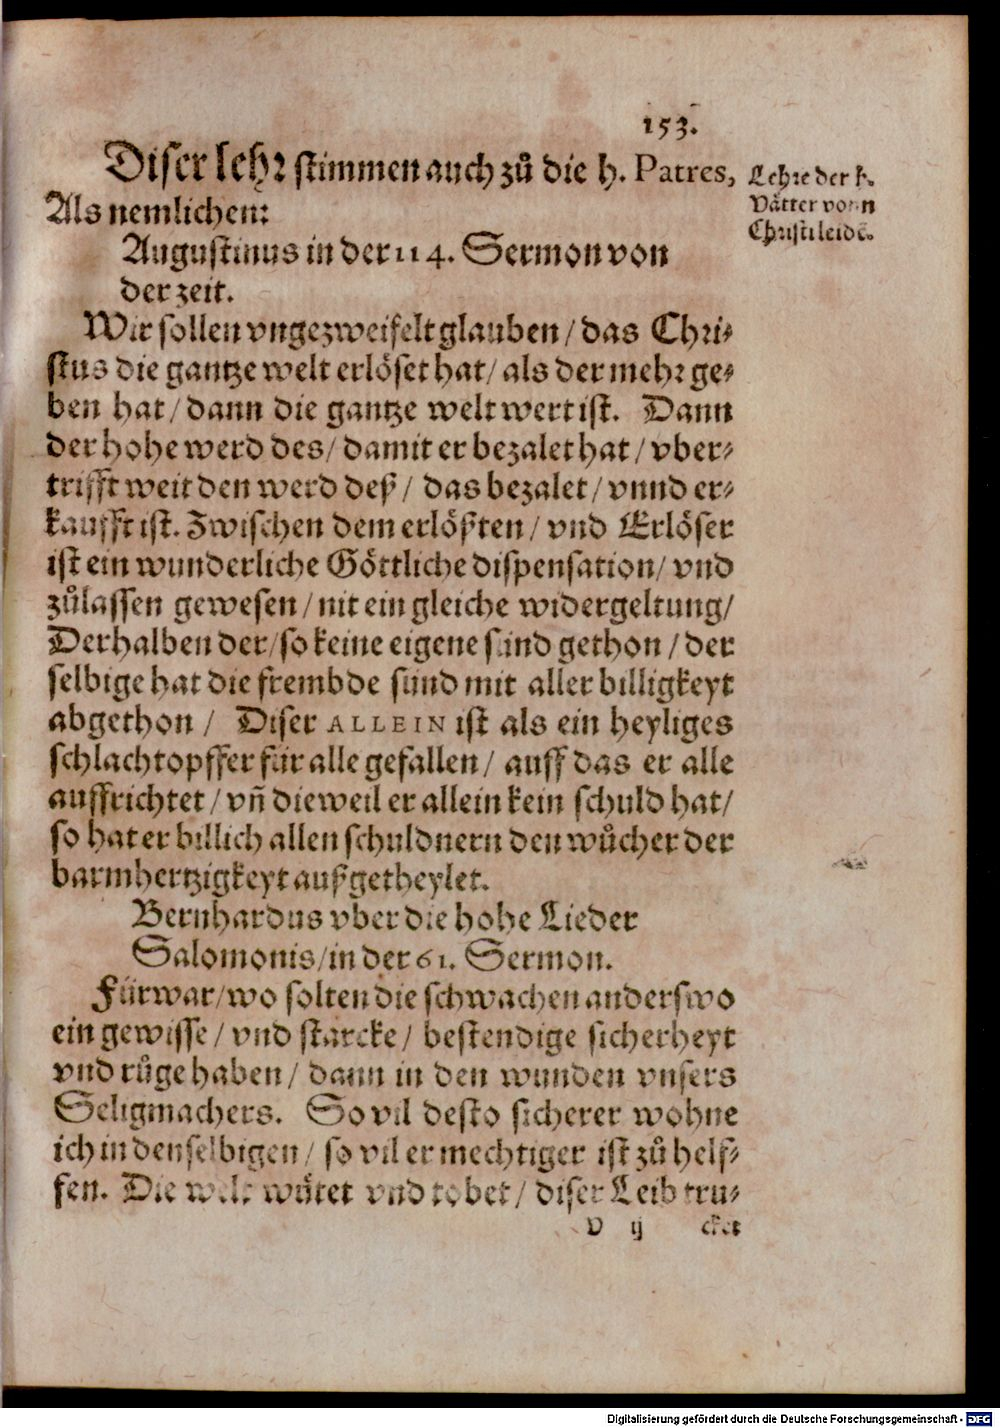 153.
Diser lehr stimmen auch zů die h. Patres,
Als nemlichen:
Lehre der h.
Vätter vonn
Christi leidẽ.
Augustinus in der 114. Sermon von
der zeit.
Wir sollen vngezweifelt glauben / das Chri-
stus die gantze welt erlöset hat / als der mehr ge-
ben hat / dann die gantze welt wert ist. Dann
der hohe werd des / damit er bezalet hat / vber-
trifft weit den werd deß / das bezalet / vnnd er-
kaufft ist. Zwischen dem erlößten / vnd Erlöser
ist ein wunderliche Göttliche dispensation / vnd
zůlassen gewesen / nit ein gleiche widergeltung /
Derhalben der / so keine eigene sünd gethon / der
selbige hat die frembde sünd mit aller billigkeyt
abgethon / Diser ALLEIN ist als ein heyliges
schlachtopffer für alle gefallen / auff das er alle
auffrichtet / vñ dieweil er allein kein schuld hat /
so hat er billich allen schuldnern den wůcher der
barmhertzigkeyt außgetheylet.
Bernhardus vber die hohe Lieder
Salomonis / in der 61. Sermon.
Fürwar / wo solten die schwachen anderswo
ein gewisse / vnd starcke / bestendige sicherheyt
vnd růge haben / dann in den wunden vnsers
Seligmachers. So vil desto sicherer wohne
ich in denselbigen / so vil er mechtiger ist zů helf-
fen. Die welt wütet vnd tobet / diser Leib tru-
V ij cket
Digitalisierung gefördert durch die Deutsche Forschungsgemeinschaft - DFG